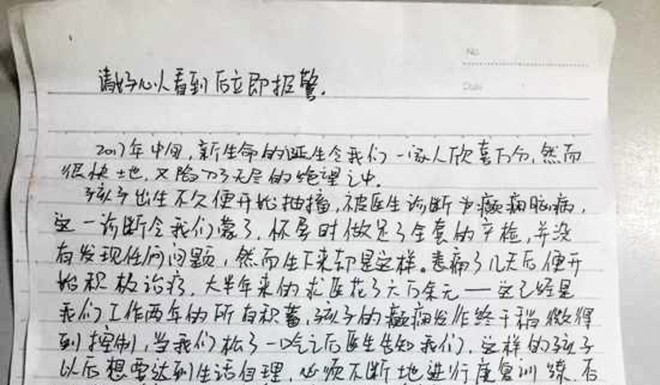 No.
Date
请好心人看到后立即报警。
2017年中旬，新生命的诞生令我们一家人欣喜万分，然而
很快地，又陷入了无尽的绝望之中。
孩子出生不久便开始抽搐，被医生诊断为癫痫脑病，
这一诊断令我们蒙了，怀孕时做足了全套的产检，并没
有发现任何问题，然而生下来却是这样。悲痛了几天后便开
始积极治疗，大半年来的求医花了六万余元——这已经是
我们工作两年的所有积蓄，孩子的癫痫发作终于稍微得
到控制，当我们松了一口气之后医生告知我们，这样的孩子
以后想要达到生活自理，必须不断地进行康复训练，否